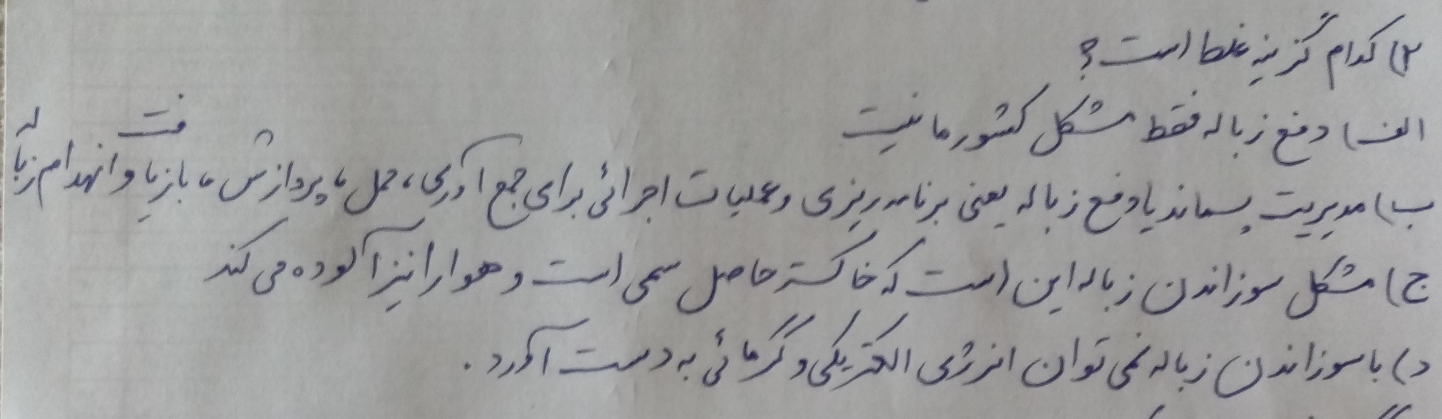 ۲) کدام گزینه غلط است؟
الف) دفع زباله فقط مشکل کشور ما نیست
ب) مدیریت پسماند یا دفع زباله یعنی برنامه ریزی و عملیات اجرائی برای جمع آوری، حمل، پردازش، بازیافت و انهدام زباله
ج) مشکل سوزاندن زباله این است که خاکستر حاصل سمی است و هوا را نیز آلوده می کند
د) با سوزاندن زباله نمی توان انرژی الکتریکی و گرمائی به دست آورد.